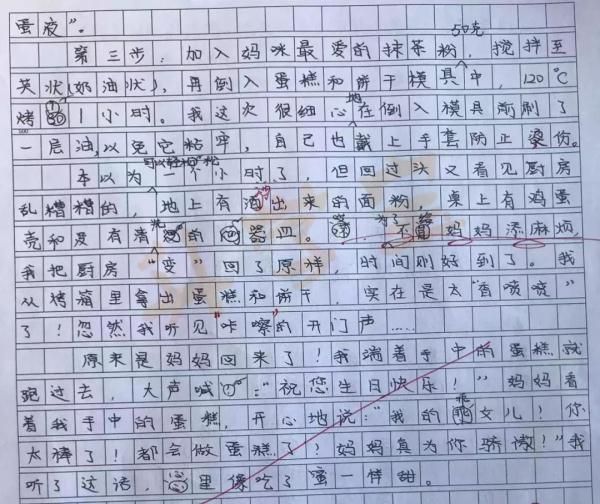 蛋液”。
第三步，加入妈咪最爱的抹茶粉50克，搅拌至
英状(奶油状)，再倒入蛋糕和饼干模具中，120℃
烤1小时。我这次很细心地在倒入模具前刷了
一层油，以免它粘牢，自己也戴上手套防止烫伤。
本以为可以轻松一个小时了，但回过头又看见厨房
乱糟糟的，地上有洒出来的面粉，桌上有鸡蛋
壳和及有清洗的器皿。为了不给妈妈添麻烦，
我把厨房“变”回了原样，时间刚好到了。我
从烤箱里拿出蛋糕和饼干，实在是太“香喷喷”
了！忽然我听见“咔嚓”的开门声……
原来是妈妈回来了！我端着手中的蛋糕就
跑过去，大声喊：“祝您生日快乐！”妈妈看
着我手中的蛋糕，开心地说：“我的乖女儿！你
太棒了！都会做蛋糕了！妈妈真为你骄傲！”我
听了这话，心里像吃了蜜一样甜。